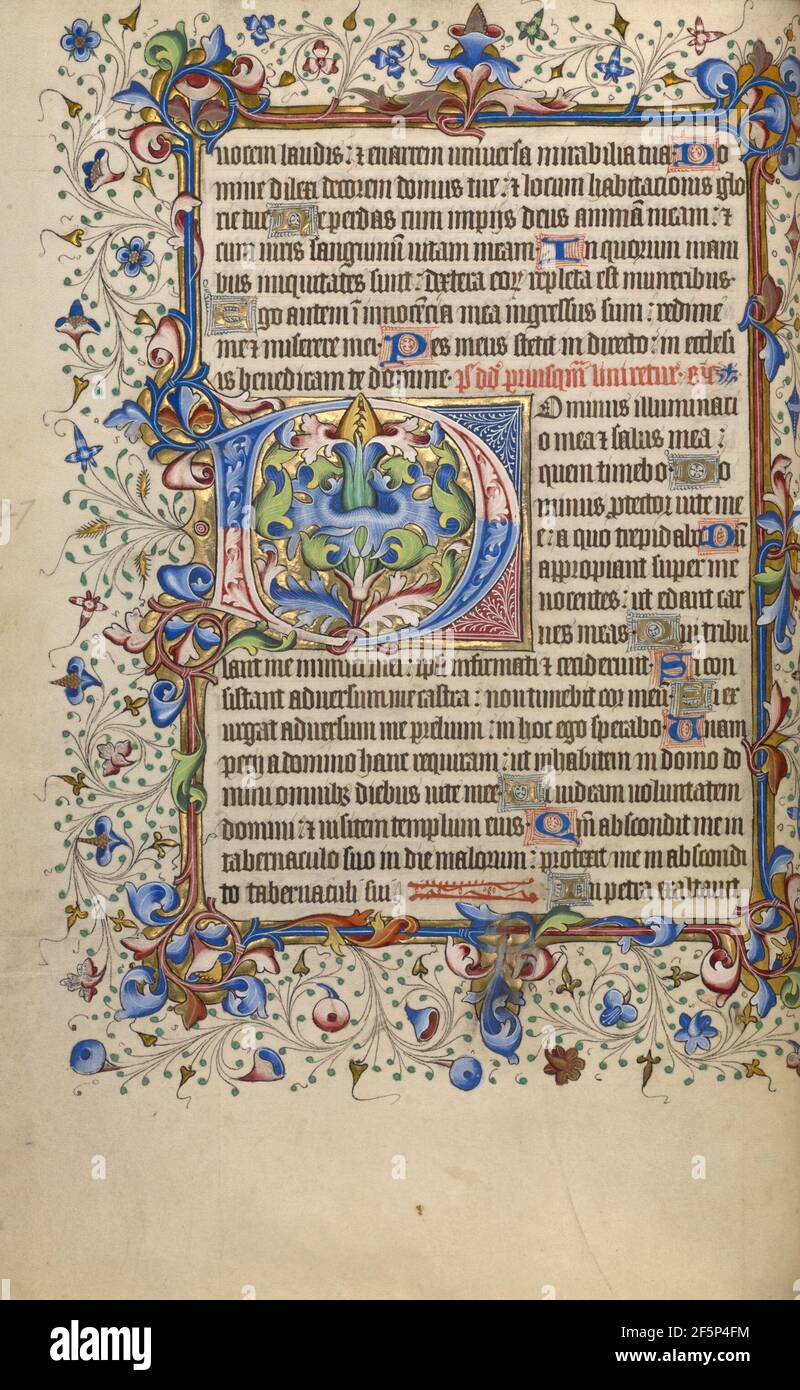 uocem laudis: ⁊ enarrem uniuersa mirabilia tua Do
mine dilexi decorem domus tue: ⁊ locum habitacionis glo
rie tue Ne perdas cum impijs deus animā meam: ⁊
cum uiris sanguinum uitam meam In quorum mani
bus iniquitates sunt: dextera eoꝝ repleta est muneribus.
Ego autem ī innocēcia mea ingressus sum: redime
me ⁊ miserere mei. Pes meus stetit in directo: in ecclesi
is benedicam te domine. ps dd̄ priusqm̄ liniretur.
Dominus illuminaci
o mea ⁊ salus mea:
quem timebo. Do
minus ꝓtector uite me
e: a quo trepidabo Dū
appropiant super me
nocentes: ut edant car
nes meas. Qui tribu
lant me inimici mei: ipsi infirmati ⁊ ceciderunt. Si con
sistant aduersum me castra: non timebit cor meū Si ex
urgat aduersum me prelium: in hoc ego sperabo Unam
pecij a domino hanc requiram: ut inhabitem in domo do
mini omnibꝫ diebus uite mee Ut uideam uoluntatem
domini: ⁊ uisitem templum eius. Qm̄ abscondit me in
tabernaculo suo in die malorum: protexit me in abscondi
to tabernaculi sui In petra exaltauit
a
alamy
alamy
Image ID: 2F5P4FM
www.alamy.com